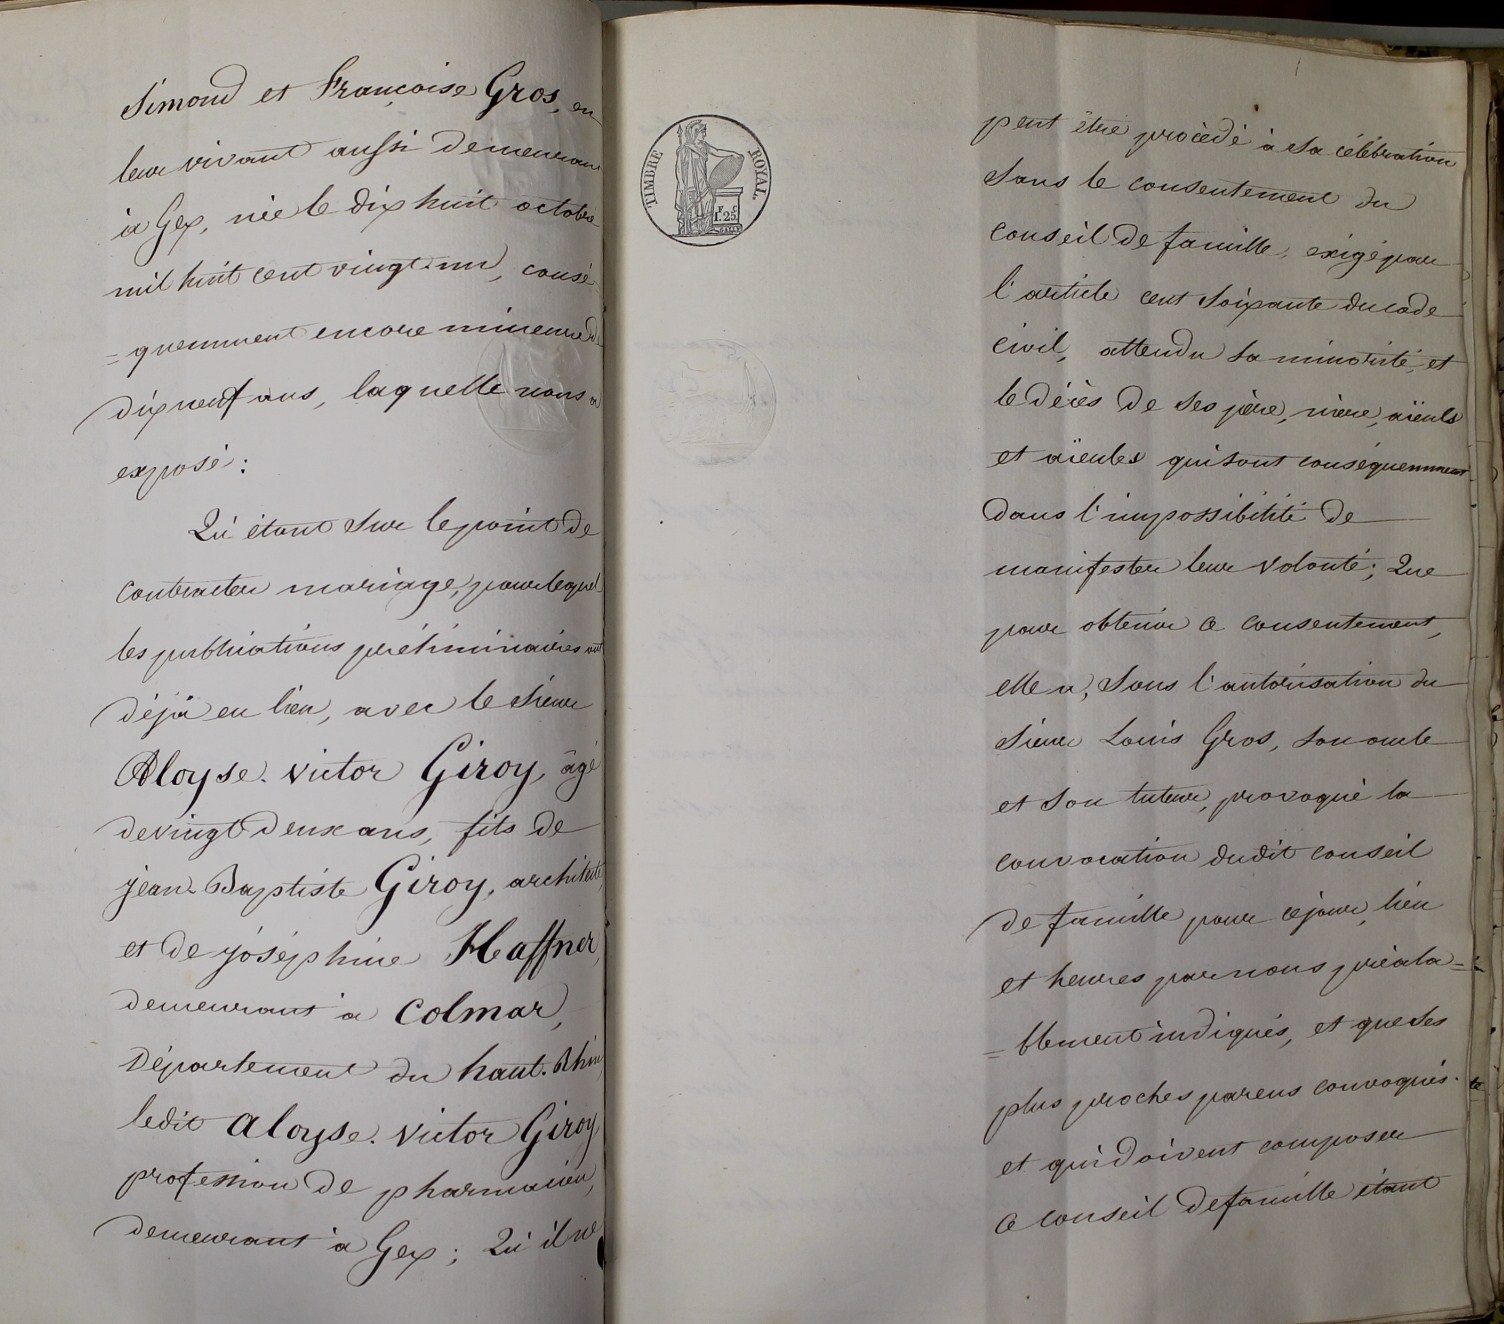 Simond et Françoise Gros, en
leur vivant aussi demeurant
à Gex, née le dix huit octobre
mil huit cent vingt un, consé
= quemment encore mineure de
dix neuf ans, laquelle nous a
exposé :
Qu'étant sur le point de
contracter mariage, pour lequel
les publications préliminaires ont
déjà eu lieu, avec le sieur
Aloyse. Victor Giroy, âgé
de vingt deux ans, fils de
jean-Baptiste Giroy, architecte,
et de joséphine Haffner,
demeurant à Colmar,
Département du haut. Rhin
ledit aloyse. Victor Giroy
profession de pharmacien,
demeurant à Gex ; Qu'il ne
TIMBRE ROYAL.
F. C.
1. 25.
peut être procédé à sa célébration
sans le consentement du
conseil de famille, exigé par
l'article cent soixante du code
civil, attendu sa minorité, et
le décès de ses père, mère, aïeuls
et aïeules qui sont conséquemment
dans l'impossibilité de
manifester leur volonté ; Que
pour obtenir ce consentement,
elle a, sous l'autorisation du
sieur Louis Gros, son oncle
et son tuteur, provoqué la
convocation dudit conseil
de famille pour ce jour, lieu
et heures par nous préala =
= blement indiqués, et que ses
plus proches parens convoqués
et qui doivent composer
ce conseil de famille étant